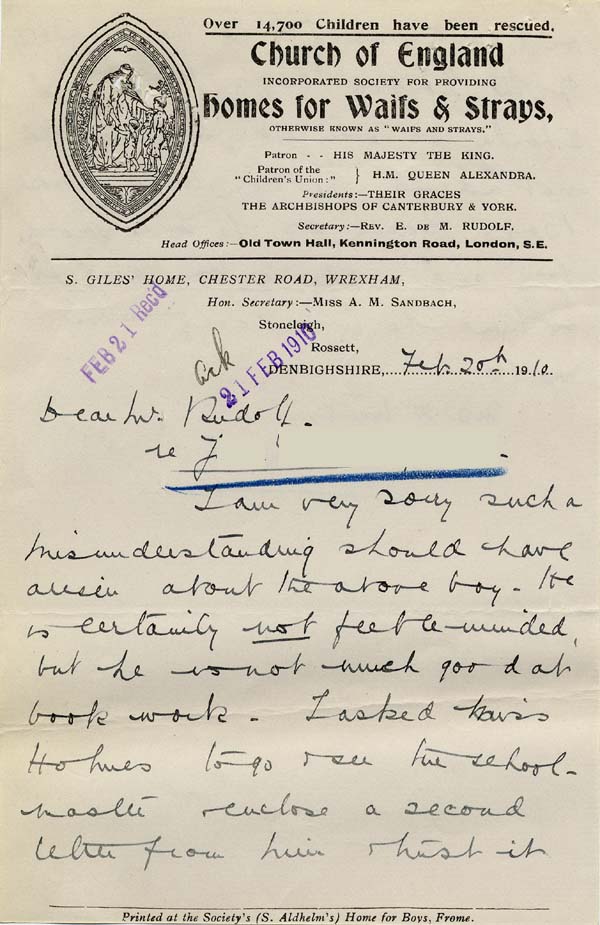 Over 14,700 Children have been rescued.
Church of England
INCORPORATED SOCIETY FOR PROVIDING
Homes for Waifs & Strays,
OTHERWISE KNOWN AS "WAIFS AND STRAYS."
Patron - - HIS MAJESTY THE KING.
Patron of the "Children's Union:" } H.M. QUEEN ALEXANDRA.
Presidents:—THEIR GRACES
THE ARCHBISHOPS OF CANTERBURY & YORK.
Secretary:—REV. E. DE M. RUDOLF.
Head Offices:—Old Town Hall, Kennington Road, London, S.E.
S. GILES' HOME, CHESTER ROAD, WREXHAM,
Hon. Secretary:—MISS A. M. SANDBACH,
Stoneleigh,
Rossett,
DENBIGHSHIRE, Feb. 20th 1910.
FEB 21 Recd
ack
21 FEB 1910
Dear Mr. Rudolf.
re J
I am very sorry such a
misunderstanding should have
arisen about the above boy - He
is certainly not feeble-minded,
but he is not much good at
book work - I asked Miss
Holmes to go & see the school-
master & enclose a second
letter from him & trust it
Printed at the Society's (S. Aldhelm's) Home for Boys, Frome.